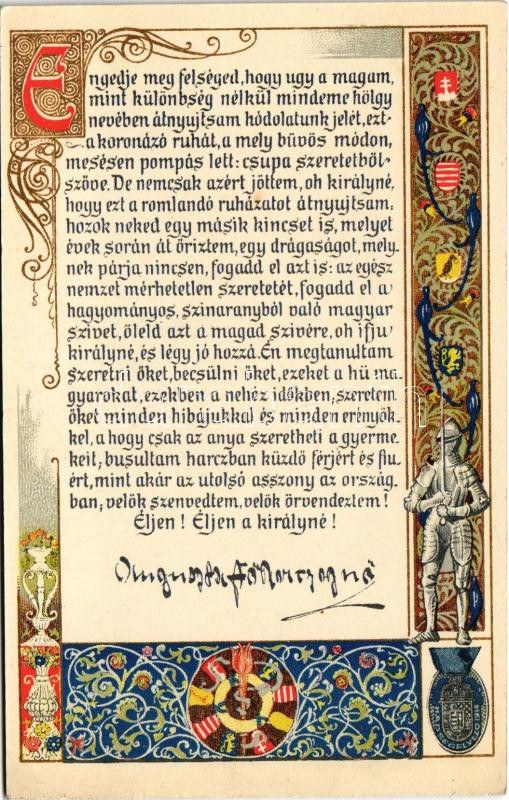 Engedje meg felséged, hogy ugy a magam,
mint különbség nélkül mindeme hölgy
nevében átnyujtsam hódolatunk jelét, ezt
a koronázó ruhát, a mely bűvös módon,
mesésen pompás lett: csupa szeretetből
szöve. De nemcsak azért jöttem, oh királyné,
hogy ezt a romlandó ruházatot átnyujtsam:
hozok neked egy másik kincset is, melyet
évek során át őriztem, egy drágaságot, mely-
nek párja nincsen, fogadd el azt is: az egész
nemzet mérhetetlen szeretetét, fogadd el a
hagyományos, szinaranyból való magyar
szivet, öleld azt a magad szivére, oh ifju
királyné, és légy jó hozzá. Én megtanultam
szeretni őket, becsülni őket, ezeket a hű ma-
gyarokat, ezekben a nehéz időkben, szeretem
őket minden hibájukkal és minden erényök-
kel, a hogy csak az anya szeretheti a gyerme-
keit; busultam harczban küzdő férjért és fiu-
ért, mint akár az utolsó asszony az ország-
ban; velök szenvedtem, velök örvendeztem!
Éljen! Éljen a királyné!
Auguszta Főherczegnő